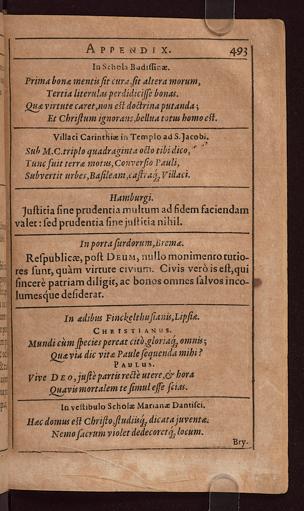 APPENDIX. 493
In Schola Budissinæ.
Prima bonæ mentis sit cura, sit altera morum,
Tertia literulas perdidicisse bonas.
Quæ virtute caret, non est doctrina putanda;
Et Christum ignorans, bellua totus homo est.
Villaci Carinthiæ in Templo ad S. Jacobi.
Sub M.C. triplo quadraginta octo tibi dico,
Tunc fuit terræ motus, Conversio Pauli,
Subvertit urbes, Basileam, castraq́, Villaci.
Hamburgi.
Justitia sine prudentia multum ad fidem faciendam
valet: sed prudentia sine justitia nihil.
In porta surdorum, Bremæ.
Respublicæ, post DEUM, nullo monimento tutio-
res sunt, quàm virtute civium. Civis verò is est, qui
sincerè patriam diligit, ac bonos omnes salvos inco-
lumesque desiderat.
In ædibus Finckelthusianis, Lipsiæ.
CHRISTIANUS.
Mundi cùm species pereat citò, gloriaq́, omnis;
Quæ via dic vitæ Paule sequenda mihi?
PAULUS.
Vive DEO, justè partis rectè utere, & hora
Quavis mortalem te simul esse scias.
In vestibulo Scholæ Marianæ Dantisci.
Hæc domus est Christo, studiisq́, dicata juventæ.
Nemo sacrum violet dedecoretq́, locum.
Bry.